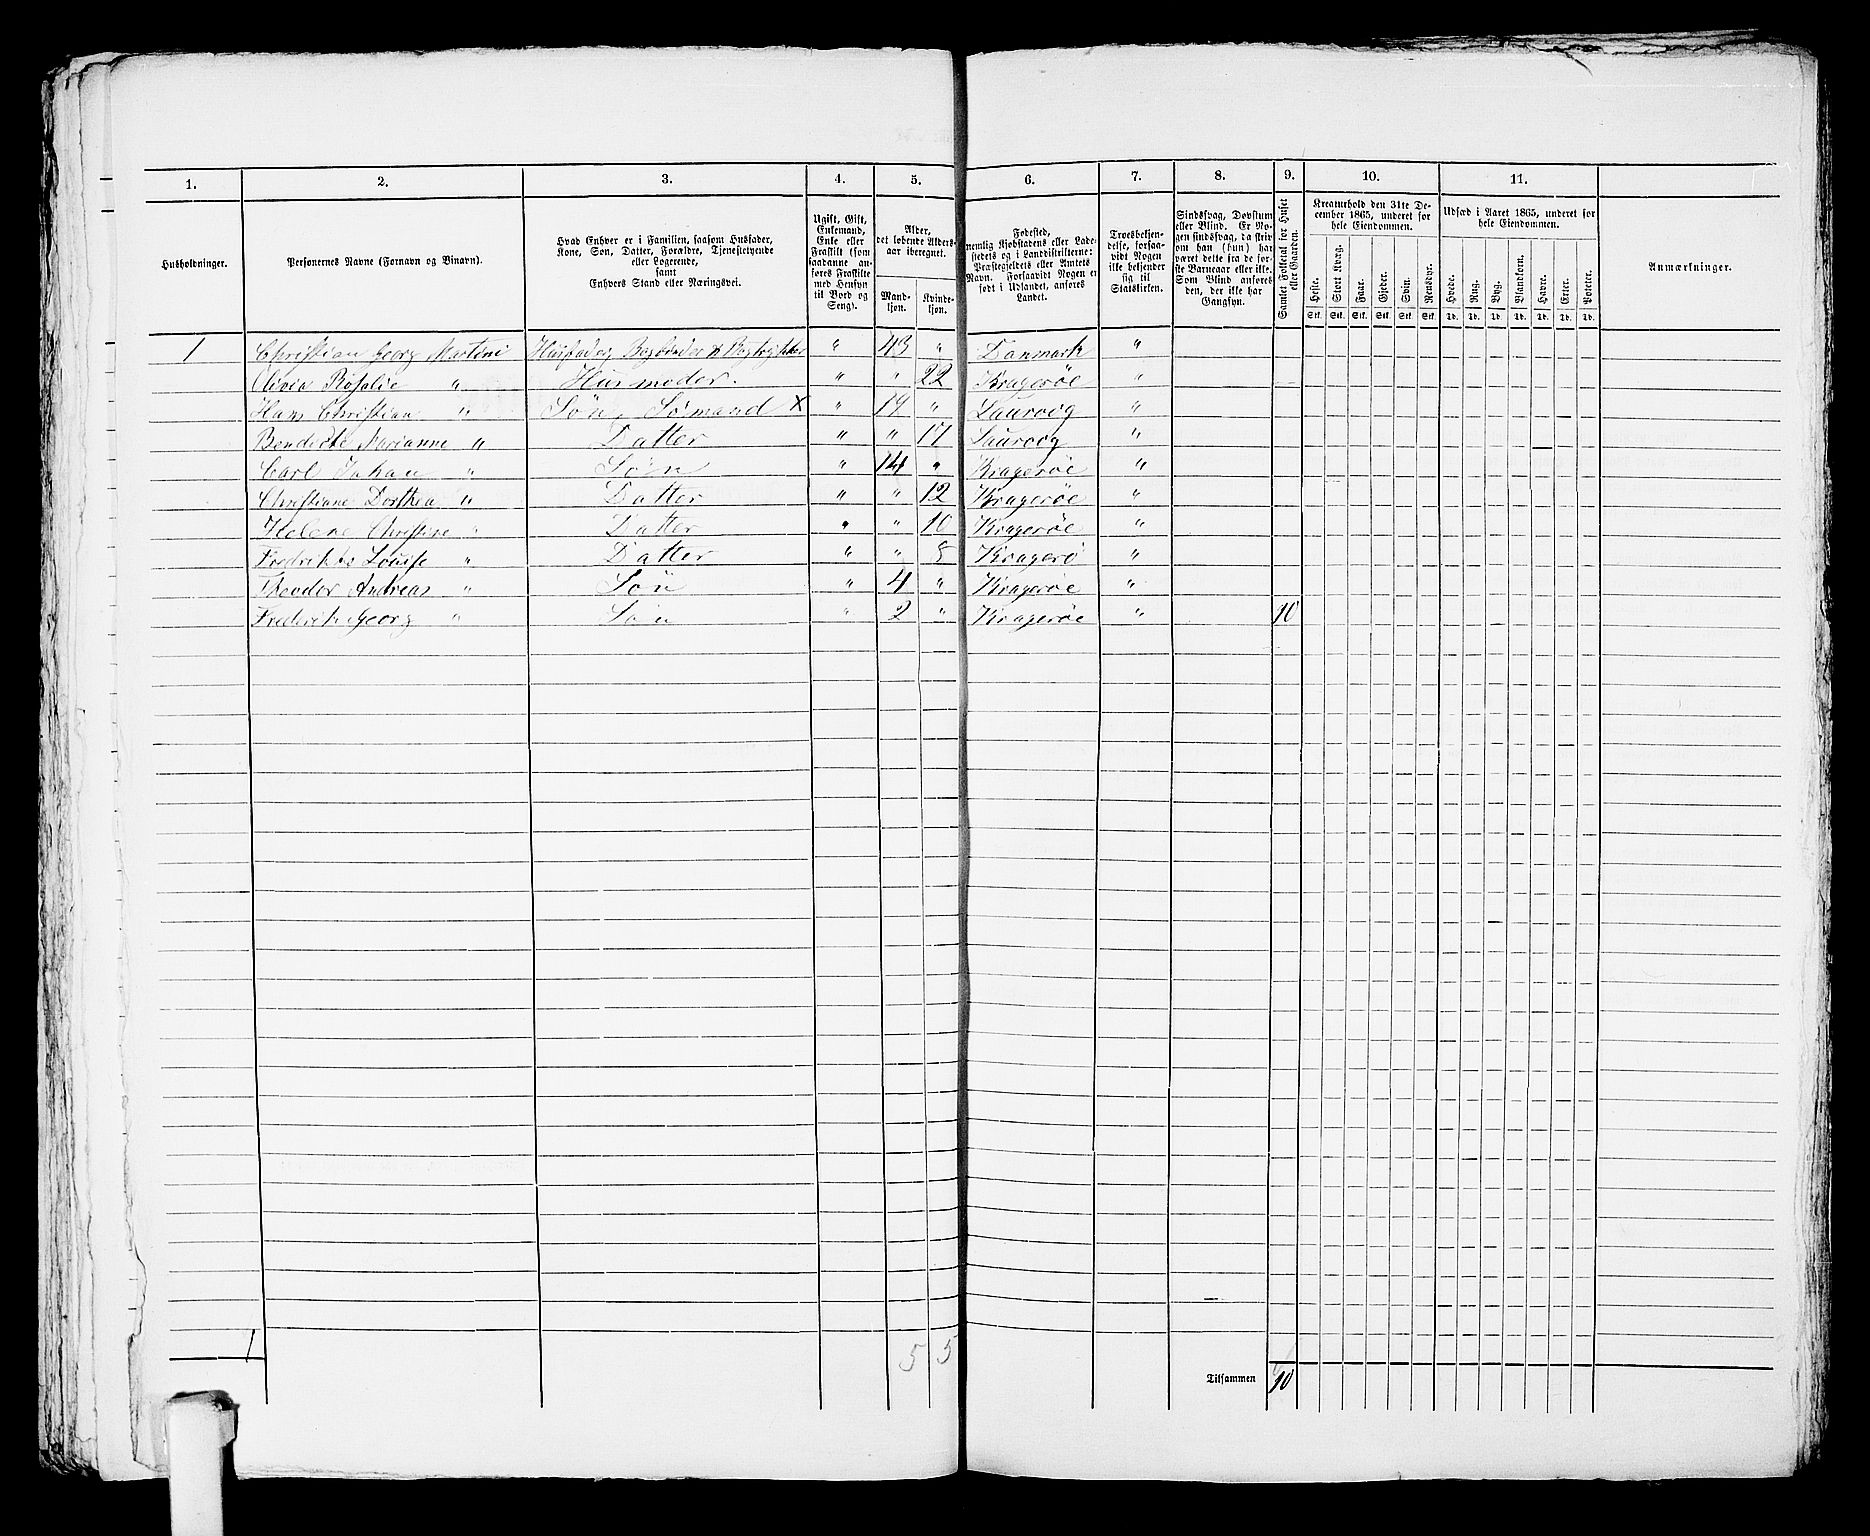 1.	2.	3.	4.	5.	6.	7.	8.	9.	10.	11.
Husholdninger.
Personernes Navne (Fornavn og Binavn).
Hvad Enhver er i Familien, saasom Husfader,
Kone, Søn, Datter, Forældre, Tjenestetyende
eller Logerende,
samt
Enhvers Stand eller Næringsvei.
Ugift, Gift,
Enkemand,
Enke eller
Fraskilt (som
saadanne an-
føres Fraskilte
med Hensyn
til Bord og
Seng).
Alder,
det løbende Alders-
aar iberegnet.
Mand-
kjøn.
Kvinde-
kjøn.
Fødested,
nemlig Kjøbstadens eller Lade-
stedets og i Landdistrikterne:
Præstegjeldets eller Amtets
Navn. Forsaavidt Nogen er
født i Udlandet, anføres
Landet.
Troesbekjen-
delse, forsaa-
vidt Nogen
ikke bekjender
sig til
Statskirken.
Sindssvag, Døvstum
eller Blind. Er No-
gen sindssvag, da skriv
om han (hun) har
været dette fra de før-
ste Barneaar eller ikke.
Som Blind anføres
den, der ikke har
Gangsyn.
Samlet Folketal for Huset
eller Gaarden.
Kreaturhold den 31te De-
cember 1865, underet for
hele Eiendommen.
Heste.	Stort Kvæg.	Faar.	Gjeder.	Svin.	Rensdyr.
Stk.	Stk.	Stk.	Stk.	Stk.	Stk.
Udsæd i Aaret 1865, underet for
hele Eiendommen.
Hvede.	Rug.	Byg.	Blandkorn.	Havre.	Erter.	Poteter.
Td.	Td.	Td.	Td.	Td.	Td.	Td.
Anmærkninger.
1	Christian Georg Martini	Husfader, Bogbinder & Bogtrykker	"	43	"	Danmark	"
Olivia Rosalie "	Husmoder.	"	"	22	Kragerøe	"
Hans Christian "	Søn, Sømand X	"	19	"	Laurvig	"
Bendicte Marianne "	Datter	"	"	17	Laurvig	"
Carl Johan "	Søn	"	14	"	Kragerøe	"
Christiane Dorthea "	Datter	"	"	12	Kragerøe	"
Helene Christine "	Datter	"	"	10	Kragerøe	"
Fredrikke Louise "	Datter	"	"	8	Kragerø	"
Theodor Andreas "	Søn	"	4	"	Kragerøe	"
Frederik Georg "	Søn	"	2	"	Kragerøe	"	10
1	5	5
Tilsammen	10